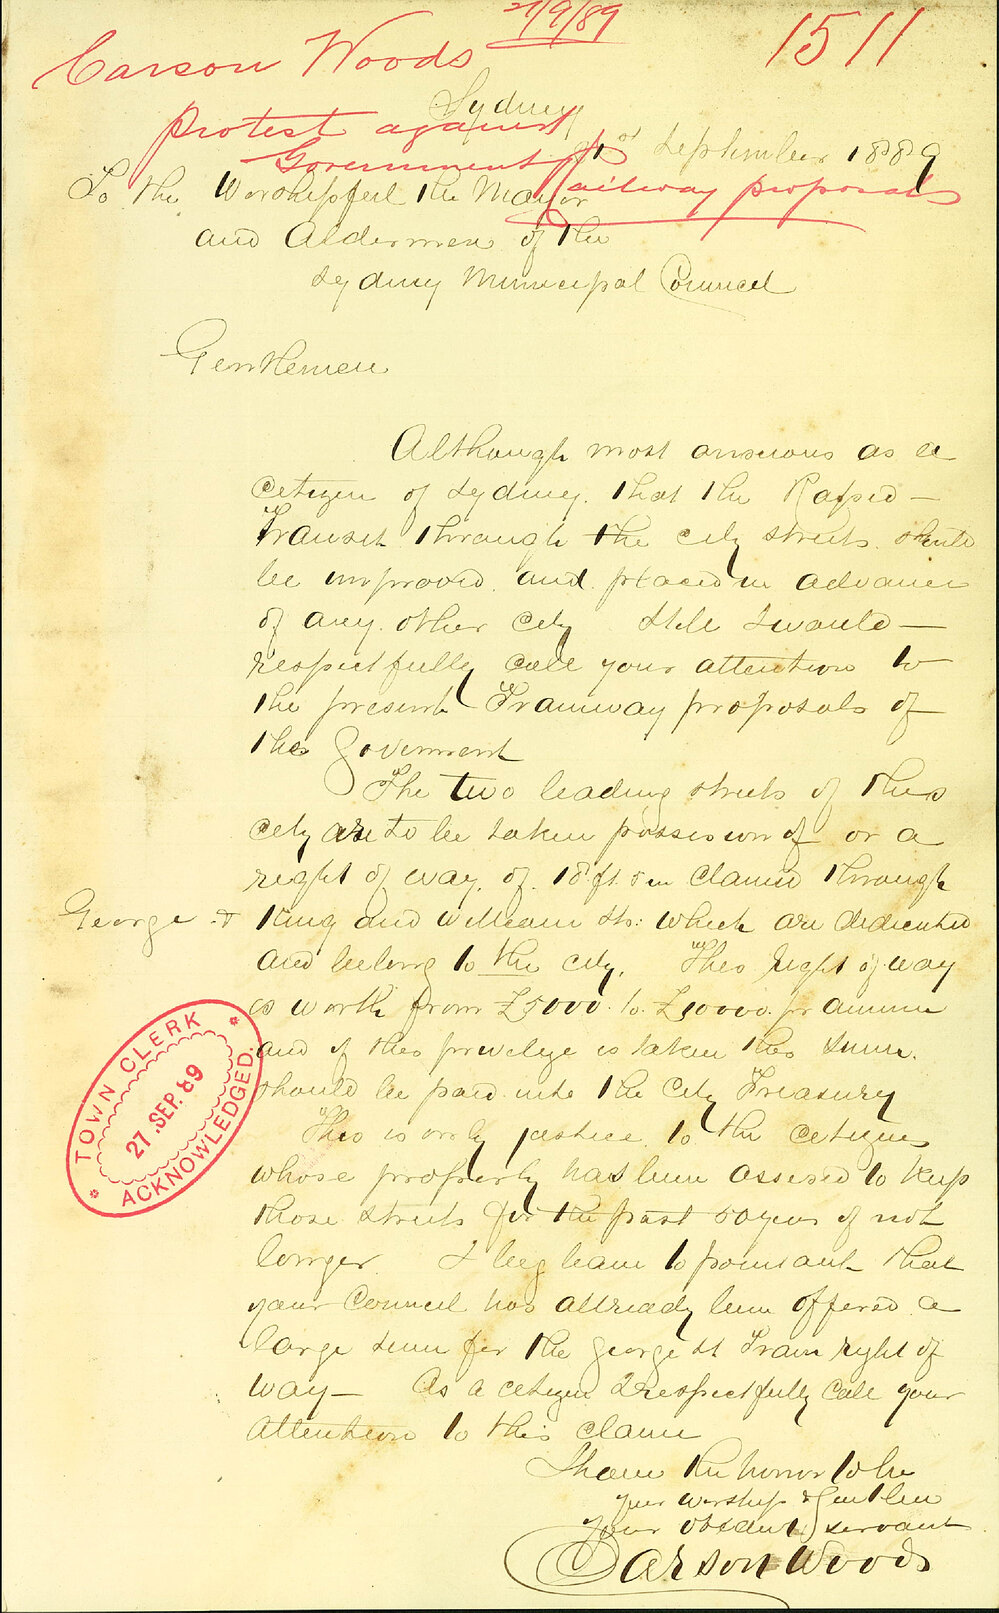 27/9/89
1511
Carson Woods
Protest against
Government
Railway proposals
Sydney
September 1889
To the Worshipful the Mayor
and Aldermen of the
Sydney Municipal Council
Gentlemen
Although most anxious as a
citizen of Sydney. that the Rapid –
Transit through the city streets should
be improved and placed in advance
of any other city Still I would –
respectfully call your attention to
the present Tramway proposals of
the Goverment
The two leading streets of this
city are to be taken possession of or a
right of way of 18 ft. 8 in claimed through
George &
King and William Sts: which are dedicated
and belong to the city. This right of way
is worth from £5000 to £10000 pr annum
and if this privelege is taken this sum
should be paid into the City Treasury
This is only justice to the citizens
whose property has been assesed to keep
those streets for the past 50 years if not
longer I beg leave to point out that
your Council has allready been offered a
large sum for the George St Tram right of
way – As a citizen I respectfully call your
attention to this claim
I have the honor to be
your worship & Gentlen
your obedient servant
Carson Woods
TOWN CLERK
27.SEP.89
ACKNOWLEDGED.